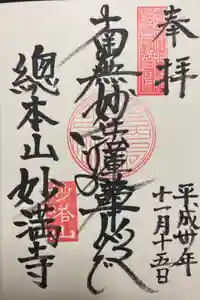 奉拝
南無妙法蓮華経
平成卅年
十一月十五日
總本山妙満寺
妙塔山